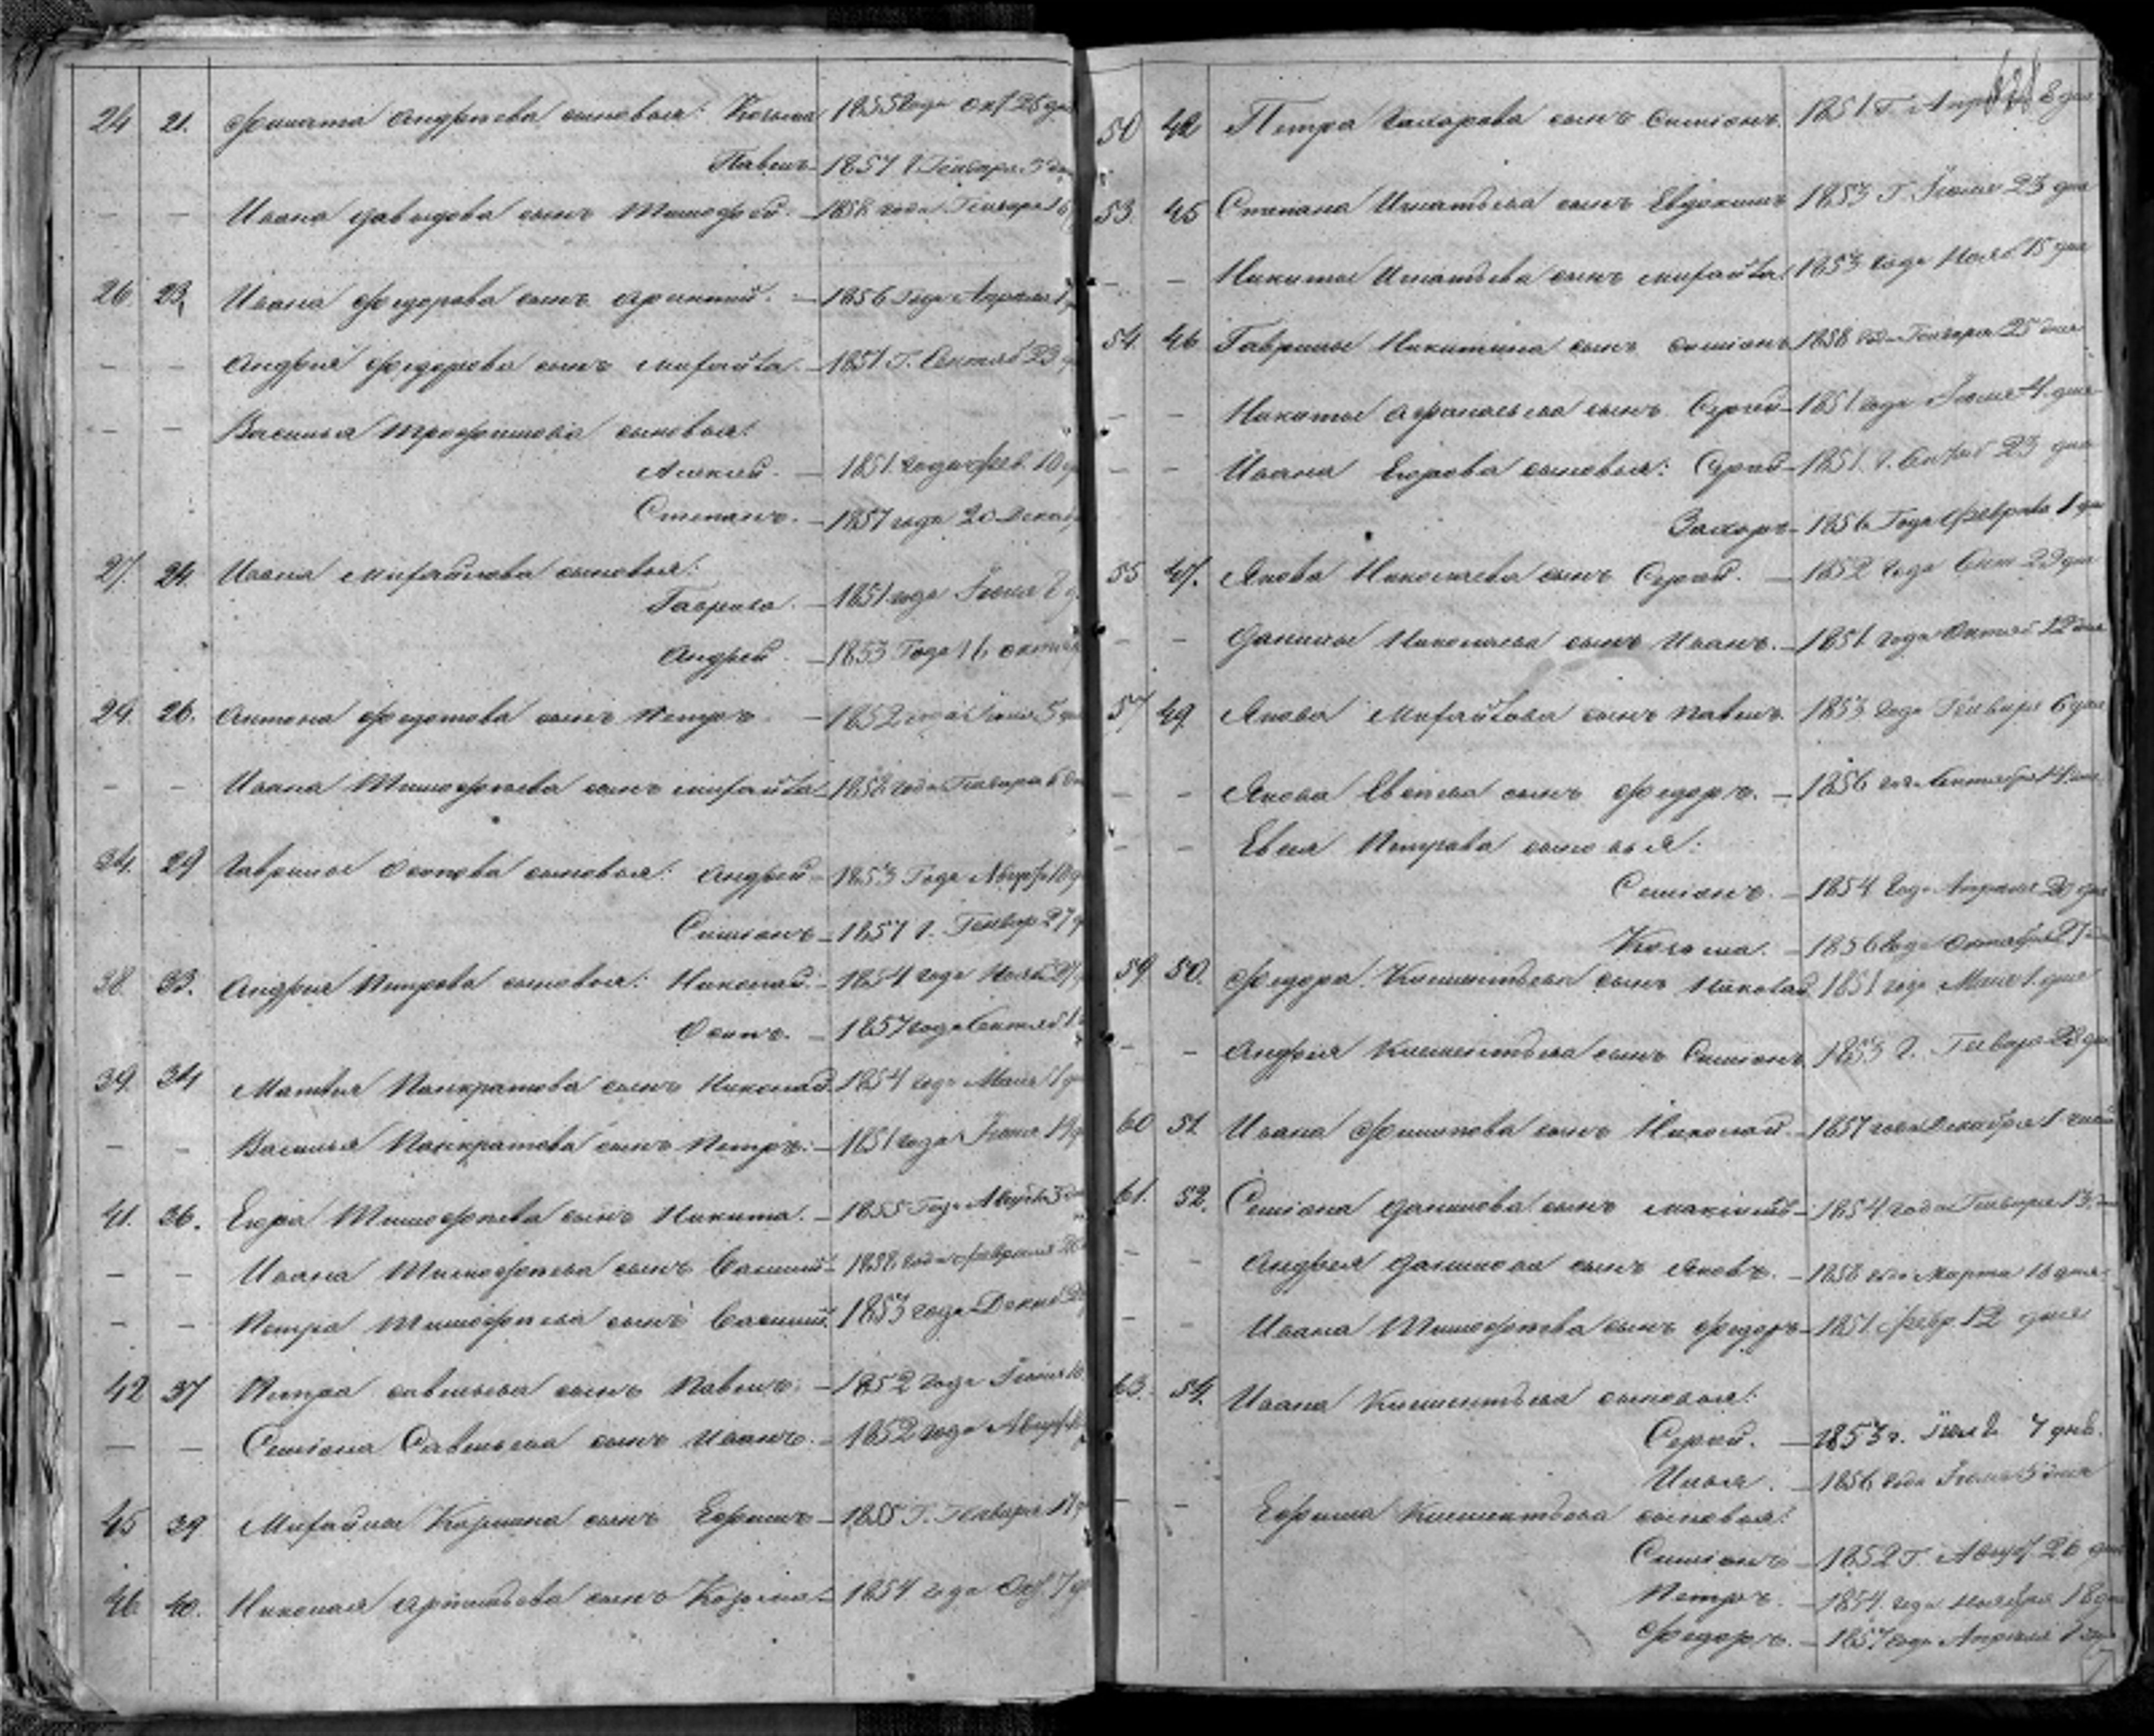 24 21. Филата Андреева сыновья: Козьма 1855 года Окт 25 дня
Павелъ – 1857 г. Генваря 3 дня
– – Ивана Давыдова сынъ Тимофей – 1858 года Генваря 6
26. 23. Ивана Федорова сынъ – 1856 года Апреля 1
– – Андрея Федорова сынъ Михайла. – 1851 г. Сентяб 23
– – Василья Трофимова сыновья:
Алексей. – 1851 года Фев. 10
Степанъ. – 1857 года 20 Декаб
27. 24. Ивана Михайлова сыновья:
Гаврила. – 1851 года
Андрей. – 1853 года 16 октяб
29. 26. Антона Федотова сынъ Петръ – 1852 года 5
– – Ивана Тимофеева сынъ Михайла – 1858 года Генваря 6
34. 29 Гаврилы Осипова сыновья: Андрей – 1853 года Август 10
Симіонъ – 1857 г. Генвар 27
38. 33. Андрея Петрова сыновья: Николай – 1854 года Нояб
Осипъ. – 1857 года Сентяб 1
39. 34 Матвея Панкратова сынъ Николай 1854 года Мая 1
– – Василья Панкратова сынъ Петръ: – 1851 года
41. 36. Егора Тимофеева сынъ Никита. – 1855 года Август 3
– – Ивана Тимофеева сынъ Василий – 1858 года Февраля
– – Петра Тимофеева сынъ Василий. 1853 года Декаб
42 37 Петра Савельева сынъ Павелъ: – 1852 года
– – Семіона Савельева сынъ Иванъ. – 1852 года Август
45 39 Михайлы Козмина сынъ Ефимъ – 1855 г. Генваря 17
46. 40. Николая Артемьева сынъ Козьма – 1854 года Окт. 7
50 42 Петра Захарова сынъ Симіонъ. 1851 г. Апр 8 дня
53. 45 Степана Игнатьева сынъ Евдокимъ 1853 г. 23 дня
– – Никиты Игнатьева сынъ Михайла 1853 года Нояб 15 дня
54. 46 Гаврилы Никитина сынъ Симіонъ 1858 года Генваря 25 дня
– – Никиты Афанасьева сынъ Сергей – 1851 года 4 дня
– – Ивана Егорова сыновья: Сергей – 1851 г. 23 дня
Захаръ – 1856 года Февраля 1 дня
55 47. Якова Николаева сынъ Сергей. – 1852 года 29 дня
– – Данилы Николаева сынъ Иванъ. – 1851 года Октяб 12 дня
57 49. Якова Михайлова сынъ Павелъ. 1853 года Генваря 6 дня
– – Якова Евсеева сынъ Федоръ. – 1856 года Сентября 14 дня
– – Евсея Петрова сыновья:
Семіонъ. – 1854 года Апреля 20 дня
Козьма. – 1856 года Октября 27
59 50. Федора Климентьева сынъ Николай 1851 года Мая 1. дня
– – Андрея Климентьева сынъ Симіонъ 1853 г. Генвар 28 дня
60 51 Ивана Филипова сынъ Николай. – 1857 года Декабря 1
61. 52. Семіона Данилова сынъ – 1854 года Генваря 13
– – Андрея Данилова сынъ Яковъ. – 1858 года Марта 16 дня
– – Ивана Тимофеева сынъ Федоръ – 1851. Февр 12 дня
63. 54. Ивана Климентьева сыновья:
Сергей. – 1853 г. 7 днъ.
Илья. – 1856 года 5 дня
– – Ефима Климентьева сыновья:
Симіонъ – 1852 г. Авгус 26 дня
Петръ. – 1854. года Ноября 18 дня
Федоръ. – 1857 года Апреля